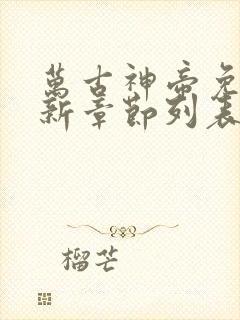 萬古神帝免
新章節列表
榴芒